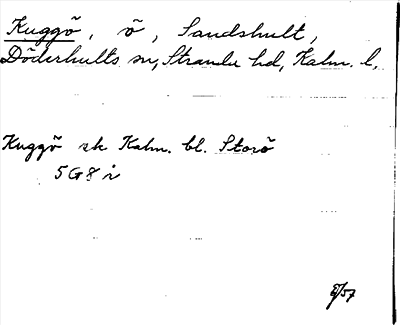 Kuggö, ö, Sandshult,
Döderhults sn, Stranda hd, Kalm. l.
Kuggö ek Kalm. bl. Storö
5 G 8 i
/57